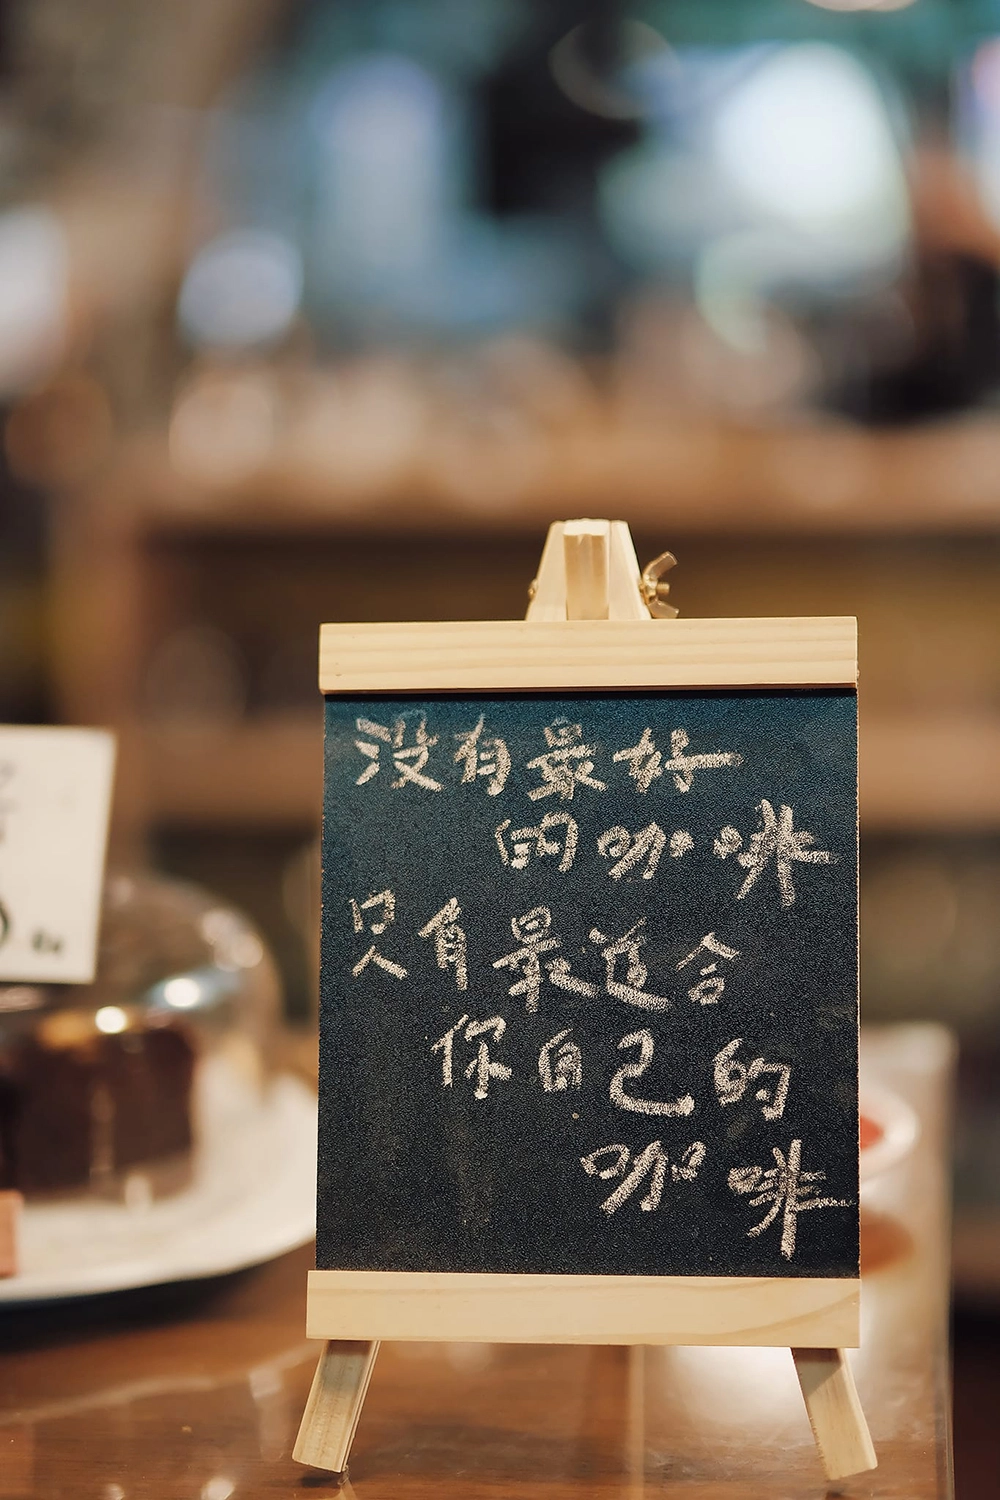 没有最好
的咖啡
只有最适合
你自己的
咖啡